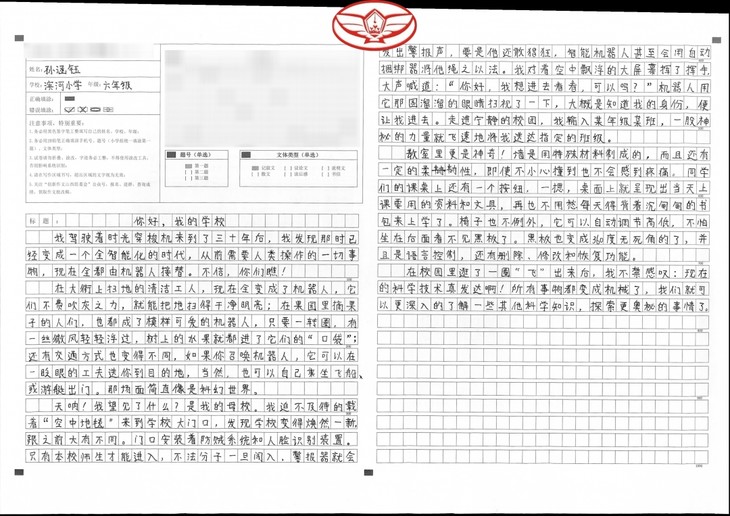 姓名：孙语钰
学校：滨河小学 年级：六年级
正确填涂：
错误填涂：
注意事项：特别重要：
题号（单选） 文体类型（单选）
第一题
第二题
第三题
记叙文
议论文
说明文
散文
书信
标题： 你好，我的学校
我驾驶着时光穿梭机来到了三十年后，我发现那时已
经变成一个全智能化的时代，从前需要人类操作的一切事
物，现在全都由机器人接替。不信，你们瞧！
在大街上扫地的清洁工人，现在全变成了机器人，它
们不费吹灰之力，就能把地扫得干净明亮；在果园里摘果
子的人们，也都成了模样可爱的机器人，只要一转圈，有
一丝微风轻轻浮过，树上的水果就都进了它们的“口袋”；
还有交通方式也变得不同，如果你召唤机器人，它可以在
一眨眼的工夫送你到目的地，当然，也可以自己乘坐飞船、
或游艇出门。那场面简直像是科幻世界。
天呐！我望见了什么？是我的母校。我迫不及待的载
着“空中地毯”来到学校大门口，发现学校变得焕然一新，
跟之前大有不同。门口安装着防贼系统和人脸识别装置。
只有本校师生才能进入，不法分子一旦闯入，警报器就会
发出警报声，要是他还敢猖狂，智能机器人甚至会用自动
捆绑器将他绳之以法。我对着空中飘浮的大屏幕挥了挥手，
大声喊道：“你好，我想进去看看，可以吗？”机器人用
它那圆溜溜的眼睛扫视了一下，大概是知道我的身份，便
让我进去。走进宁静的校园，我输入某年级某班，一股神
秘的力量就飞速地将我送进指定的班级。
教室里更是神奇！墙是用特殊材料制成的，而且还有
一定的柔韧性，即使不小心撞到也不会感到疼痛。同学
们的课桌上还有一个按钮，一摁，桌面上就呈现出当天上
课要用的资料和文具，再也不用愁每天得背着沉甸甸的书
包来上学了。椅子也不例外，它可以自动调节高低，不怕
坐在后面看不见黑板了。黑板也变成360度无死角的了，并
且是语音控制，还有删除、修改和恢复功能。
在校园里逛了一圈“飞”出来后，我不禁感叹：现在
的科学技术真发达啊！所有事物都变成机械了，我们就可
以更深入的了解一些其他科学知识，探索更奥秘的事情了。